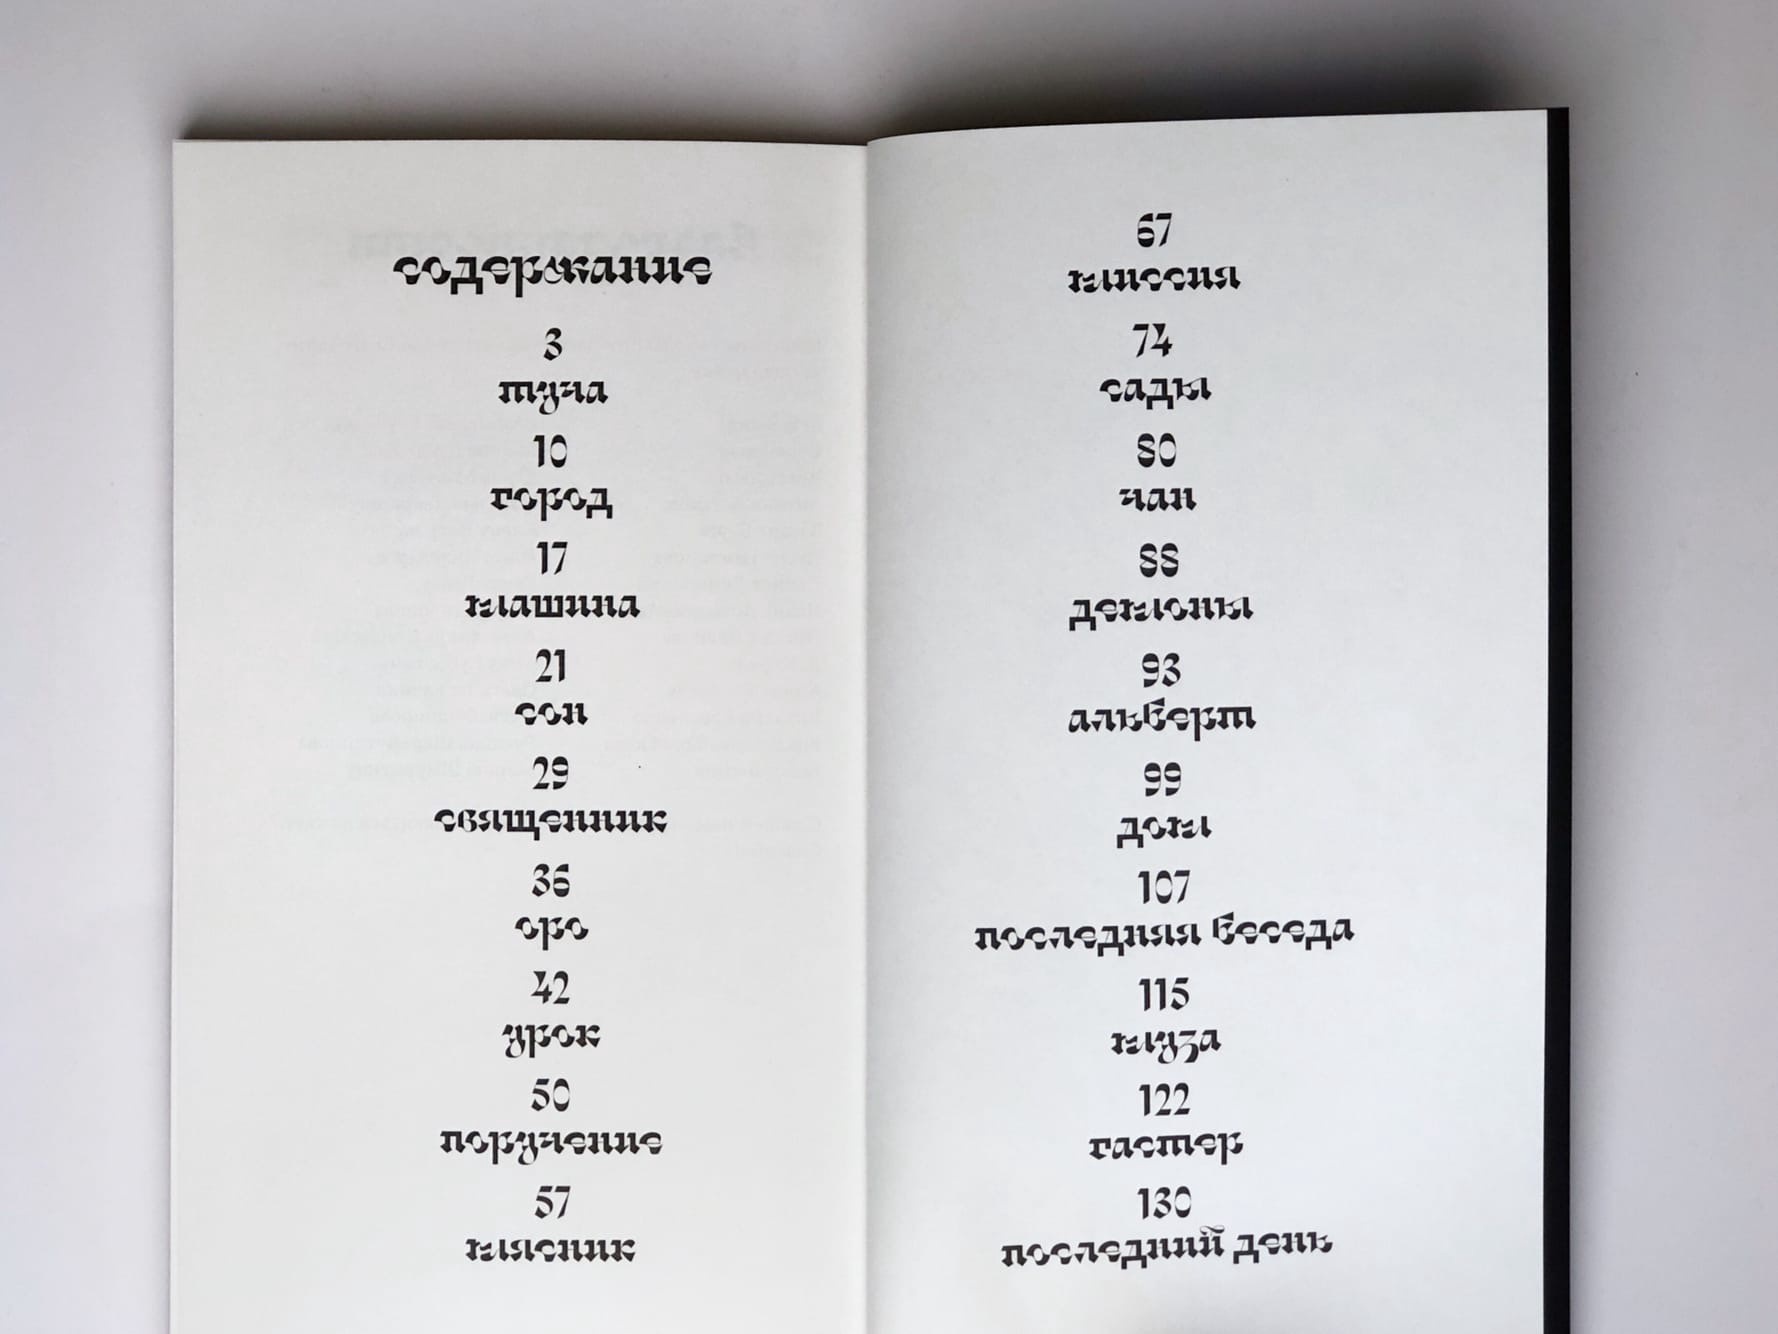 содержание
3
туча
10
город
17
машина
21
сон
29
священник
36
оро
42
урок
50
поручение
57
мясник
67
миссия
74
сады
80
чан
88
демоны
93
альберт
99
дом
107
последняя беседа
115
муза
122
гастер
130
последний день